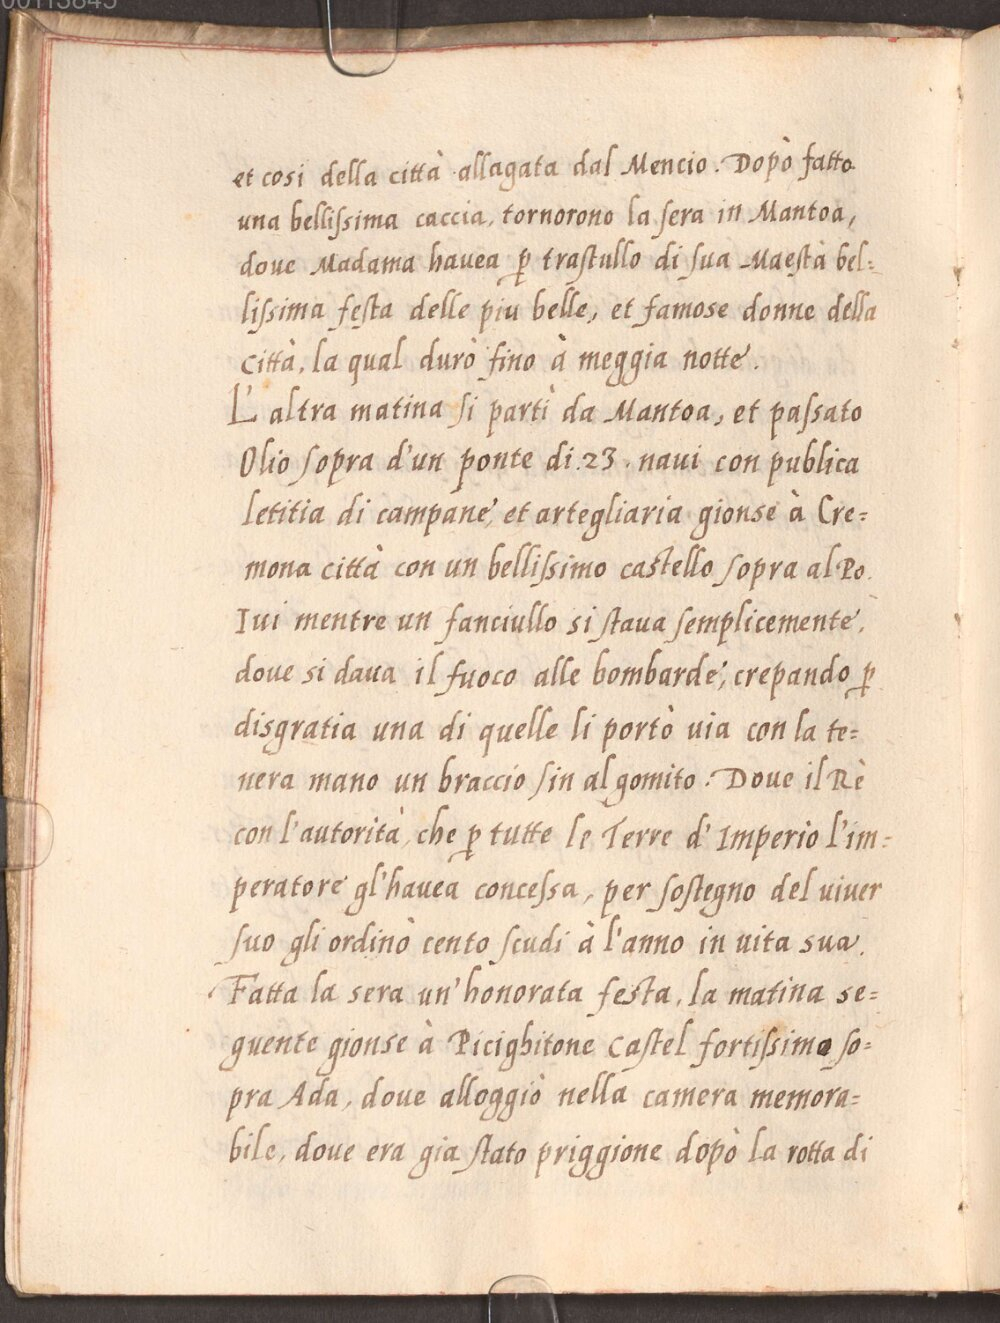 00113845
et cosi della città allagata dal Mencio. Dopò fatto
una bellissima caccia, tornorono la sera in Mantoa,
doue Madama hauea p̱ trastullo di sua Maestà bel=
lissima festa delle piu belle, et famose donne della
Città, la qual durò fino à meggia notte.
L'altra matina si partì da Mantoa, et passato
Olio sopra d'un ponte di .23. naui con publica
letitia di campane, et artegliaria gionse à Cre=
mona città con un bellissimo castello sopra al Po.
Iui mentre un fanciullo si staua semplicemente,
doue si daua il fuoco alle bombarde, crepando p̱
disgratia una di quelle li portò uia con la te=
nera mano un braccio sin al gomito. Doue il Rè
con l'autorità, che p̱ tutte le Terre d'Imperio l'im=
peratore gl'hauea concessa, per sostegno del uiuer
suo gli ordinò cento scudi à l'anno in uita sua.
Fatta la sera un'honorata festa, la matina se=
guente gionse à Picighitone Castel fortissimo so=
pra Ada, doue alloggiò nella camera memora=
bile, doue era gia stato priggione dopò la rotta di